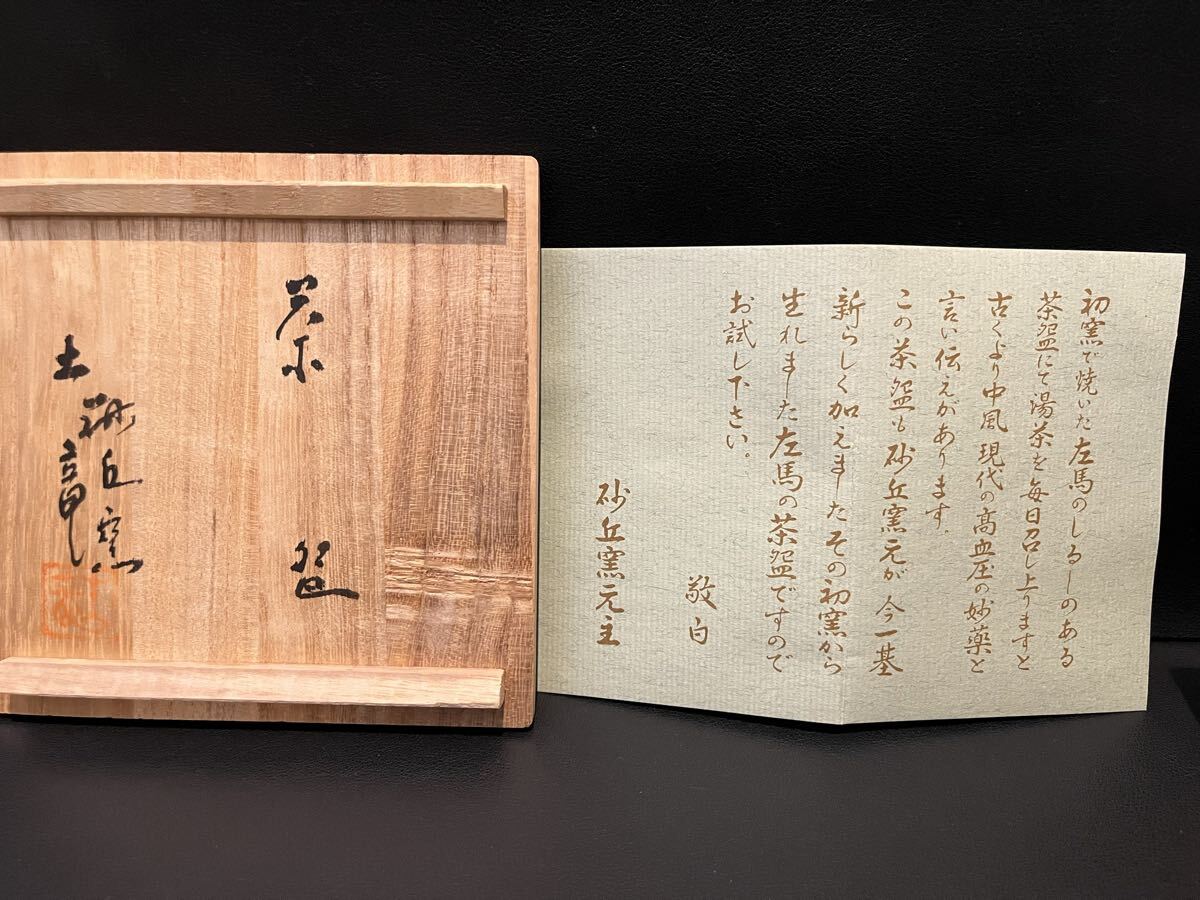 初窯で焼いた左馬のしるしのある
茶盌にて湯茶を毎日召し上りますと
古くより中風現代の高血圧の妙薬と
言い伝えがあります.
この茶盌も砂丘窯元が今一基
新らしく加えましたその初窯から
生れました左馬の茶盌ですので
お試し下さい。
敬白
砂丘窯元主
茶盌
砂丘窯
土